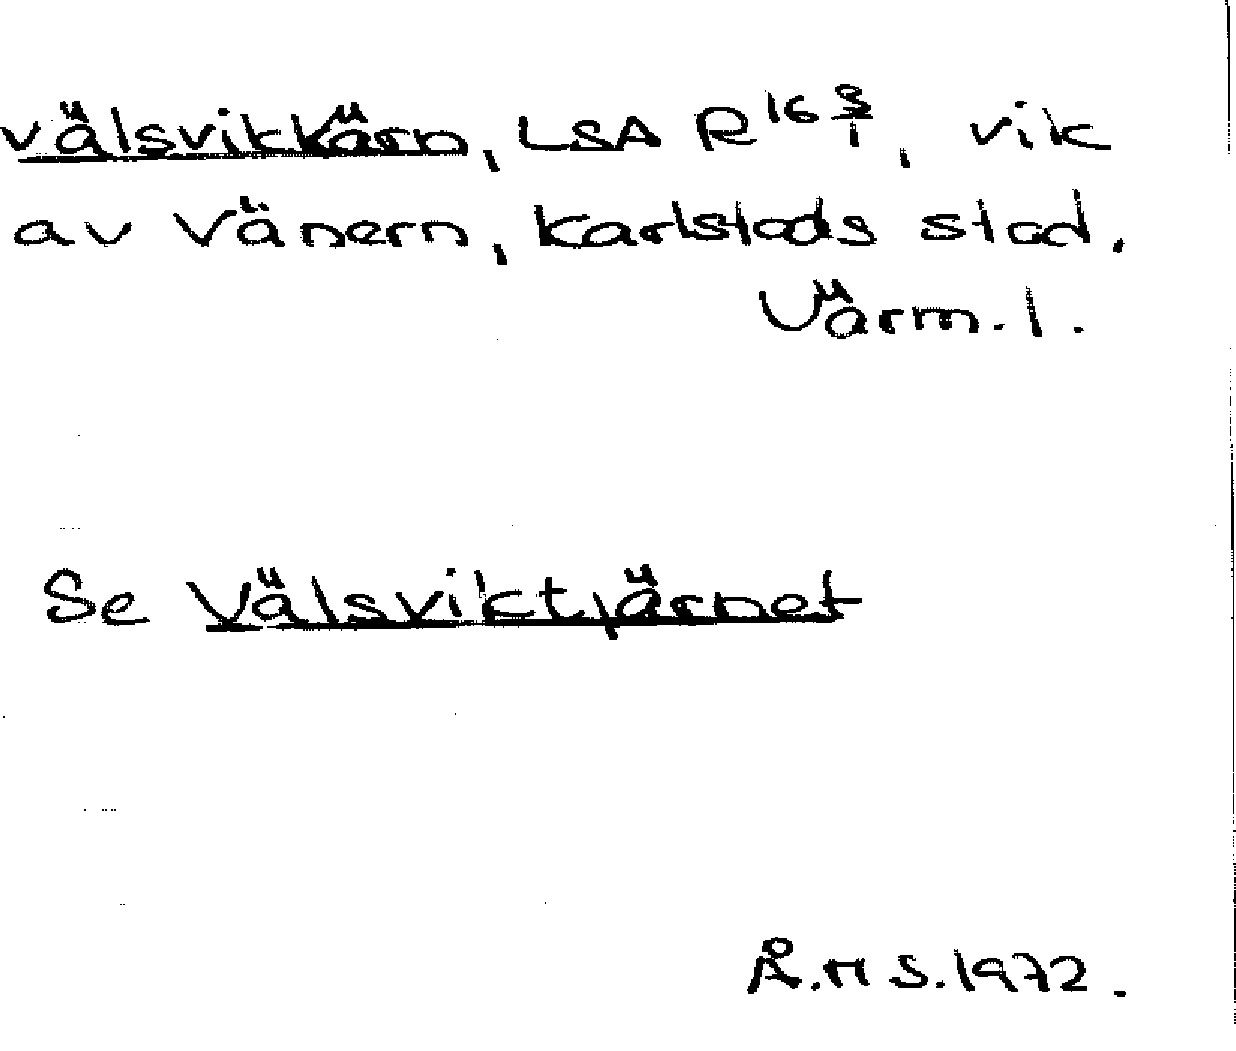 Välsvikkärn, LSA R 16 3/1, vik
av Vänern, Karlstads stad.
Värm. l.
Se Välsviktjärnet
Å.H S. 1972.